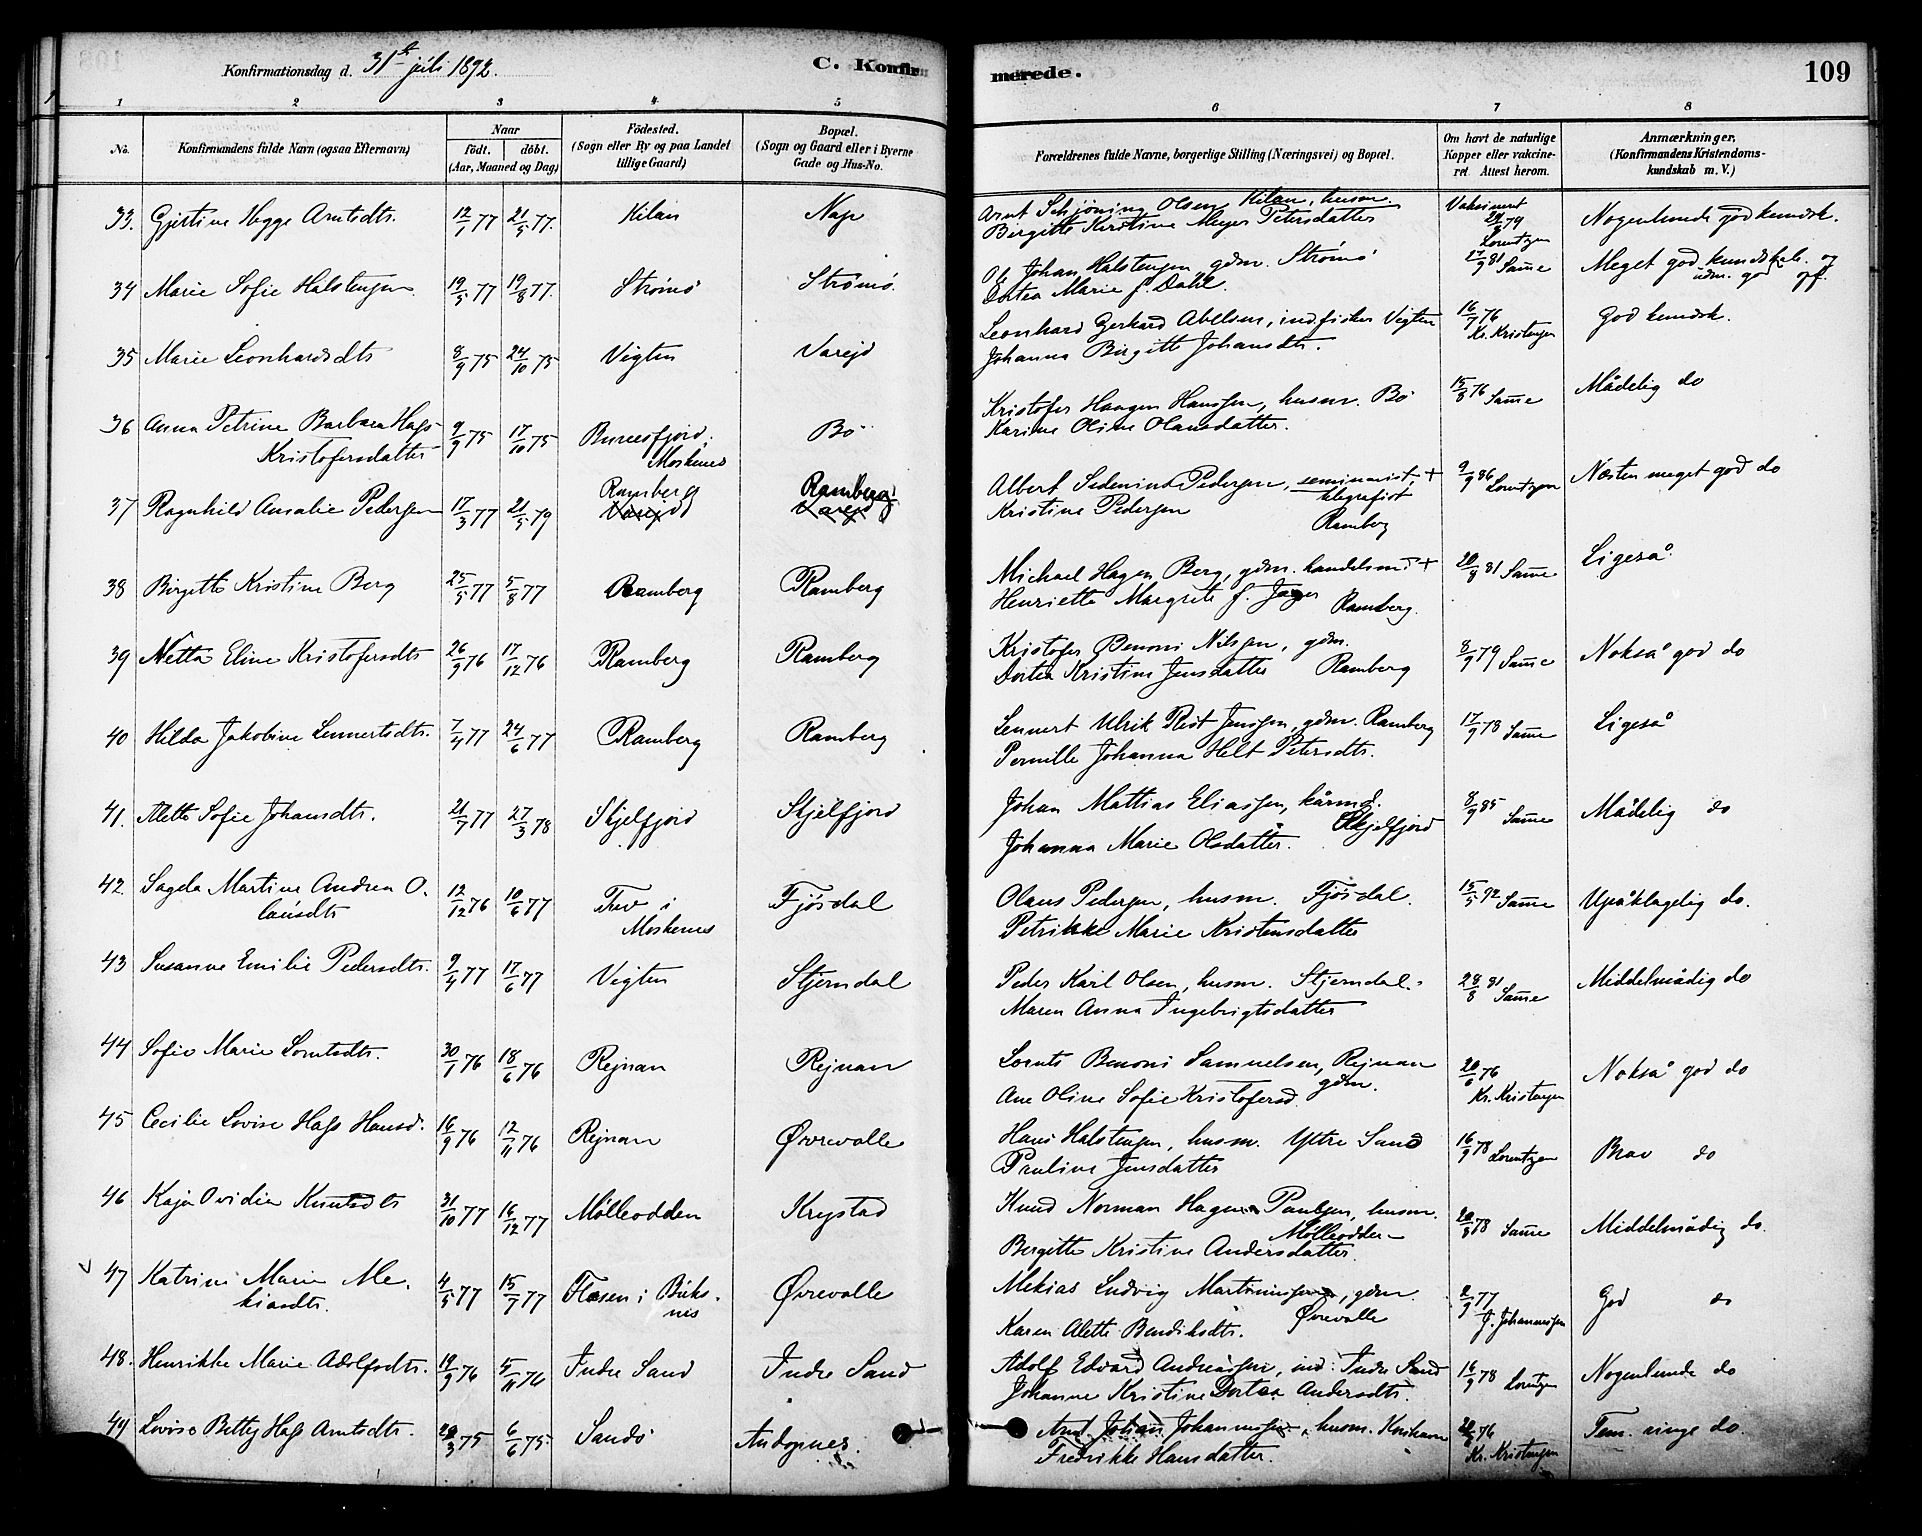 Konfirmationsdag d. 31te juli 1892.
C. Konfirmerede.
109
1 2 3 4 5 6 7 8
No.
Konfirmandens fulde Navn (ogsaa Efternavn)
Naar
født. døbt.
(Aar, Maaned og Dag)
Fødested.
(Sogn eller By og paa Landet
tillige Gaard)
Bopæl.
(Sogn og Gaard eller i Byerne
Gade og Hus-No.
Forældrenes fulde Navne, borgerlige Stilling (Næringsvei) og Bopæl.
Om havt de naturlige
Kopper eller vakcine-
ret. Attest herom.
Anmærkninger,
(Konfirmandens Kristendoms-
kundskab m. V.)
33. Gjertine Hegge Arntsdtr. 12/1 77 21/5 77. Kilan Nap Arnt Schjöning Olsen Kilan, husm. Vaksinert 28/8 79 Lorentzen Nogenlunde god kundsk.
Bergitte Kirstine Meyer Petersdatter
34 Marie Sofie Halstensen 19/5 77 19/8 77. Strømø Strømø. Johan Halstensen gdm. Strømø 27/9 81 Samme Meget god kundskab. og
Dortea Marie f. Dahl. udm. god opf.
35 Marie Leonhardsdtr 8/9 75 24/10 75 Vigten Varejd Leonhard Gerhard Abelsen, ind. fisker Vigten 16/7 76 Kr. Kristensen God kundsk.
Johanna Birgitte Johansdtr.
36 Anna Petrine Barbara Hags 9/9 75 17/10 75 Bunesfjord, Bø Kristofer Haagen Hanssen, husm. Bø 15/8 76 Samme Mådelig do
Kristofersdatter Moskenes Karine Oline Olausdatter.
37 Ragnhild Amalie Pedersen 17/3 77 21/5 79 Ramberg Ramberg Albert Pedersen, seminarist, + 9/9 86 Lorentzen Næsten meget god do
Varejd Varejd Kristine Pedersen telegrafist
Ramberg
38 Birgitte Kristine Berg 25/5 77 5/8 77 Ramberg Ramberg Michael Hagen Berg, gdm. handelsmd + 20/8 81 Samme Ligeså
Henriette Margrete f. Jæger Ramberg.
39 Netta Eline Kristofersdtr 26/9 76 17/12 76 Ramberg Ramberg Kristofer Benoni Nilsen, gdm. 8/9 79 Samme Nokså god do
Dortea Kristine Jensdatter Ramberg
40 Hilda Jakobine Lennertsdtr. 7/4 77 24/6 77 Ramberg Ramberg Lennert Ulrik Rist Jenssen, gdm. Ramberg 17/9 78 Samme Ligeså
Pernille Johanna Helt Petersdtr.
41. Alette Sofie Johansdtr. 21/7 77 27/3 78 Skjelfjord Skjelfjord Johan Mattias Eliassen, kårmd. 8/9 85 Samme Mådelig do
Skjelfjord
Johanna Marie Olsdatter.
42. Sagda Martine Andrea O- 12/12 76 10/6 77 Tuv i Fjøsdal Olaus Pedersen, husm. Fjøsdal. 15/5 92 Samme Upåklagelig do.
lausdtr Moskenes Petrikke Marie Kristensdatter
43 Susanne Emilie Pedersdtr. 9/4 77 17/6 77 Vigten Stjerndal Peder Karl Olsen, husm. Stjerndal. 28/8 81 Samme Middelmådig do
Maren Anna Ingebrigtsdatter
44 Sofie Marie Lorntsdtr. 30/1 76 18/6 76 Rejnan Rejnan Lornts Benoni Samuelsen, Rejnan 20/6 76 Kr. Kristensen Nokså god do
Ane Oline Sofie Kristofersd. gdm.
45 Cecilie Lovise Hags Hansd. 16/9 76 12/11 76 Rejnan Øvrevalle Hans Halstensen, husm. Ytre Sand 16/9 78 Lorentzen Brav do
Pauline Jensdatter
46 Kaja Ovidia Knutsdtr 31/10 77 16/12 77 Mølleodden Krystad Knud Norman Hagen Paulsen, husm. 20/8 78 Samme Middelmådig do.
Mølleodden
Bergitte Kristine Andersdatter.
47 Katrine Marie Me- 4/5 77 15/7 77 Flæsen i Buks- Øvrevalle Mekias Ludvig Martinussen, gdm. 2/9 77 J. Johannessen God do
kiasdtr. nes Karen Alette Bendiksdtr. Øvrevalle
48. Henrikke Marie Adolfsdtr. 19/9 76 5/11 76 Indre Sand Indre Sand Adolf Edvard Andreassen, ind. Indre Sand 16/9 78 Lorentzen Nogenlunde do
Johanne Kristine Dortea Andersdtr.
49 Lovise Betty Hags Arntsdtr. 28/3 75 6/6 75. Sandø Andopnes. Arnt Johan Johannessen, husm. 20/6 76 Tem. ringe do.
Fredrikke Hansdatter. Kr. Kristensen